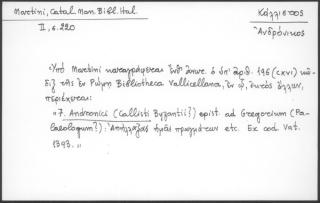 Martini, Catal. Man. Bibl. Ital.
II, σ. 220
Κάλλιστος
Ἀνδρόνικος
«Ὑπὸ Martini καταγράφεται ἐνθ' ἀνωτ. ὁ ὑπ' ἀριθ. 196 (CXVI) κώ-
διξ τῆς ἐν Ρώμῃ Bibliotheca Vallicellana, ἐν ᾧ, ἐκτὸς ἄλλων,
περιέχεται:
«7. Andronici (Callisti Byzantii?) epist. ad Gregorium (Pa-
laeologum?): πραγμάτων etc. Ex cod. Vat.
1393.»